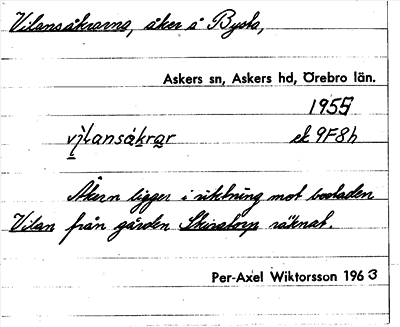 Vilansåkrarna, åker å Bysta,
Askers sn, Askers hd, Örebro län.
1955
vi̇̀lansåkrar ek 9F8h
Åkern ligger i riktning mot bostaden
Vilan från gården Skiratorp räknat.
Per-Axel Wiktorsson 1963